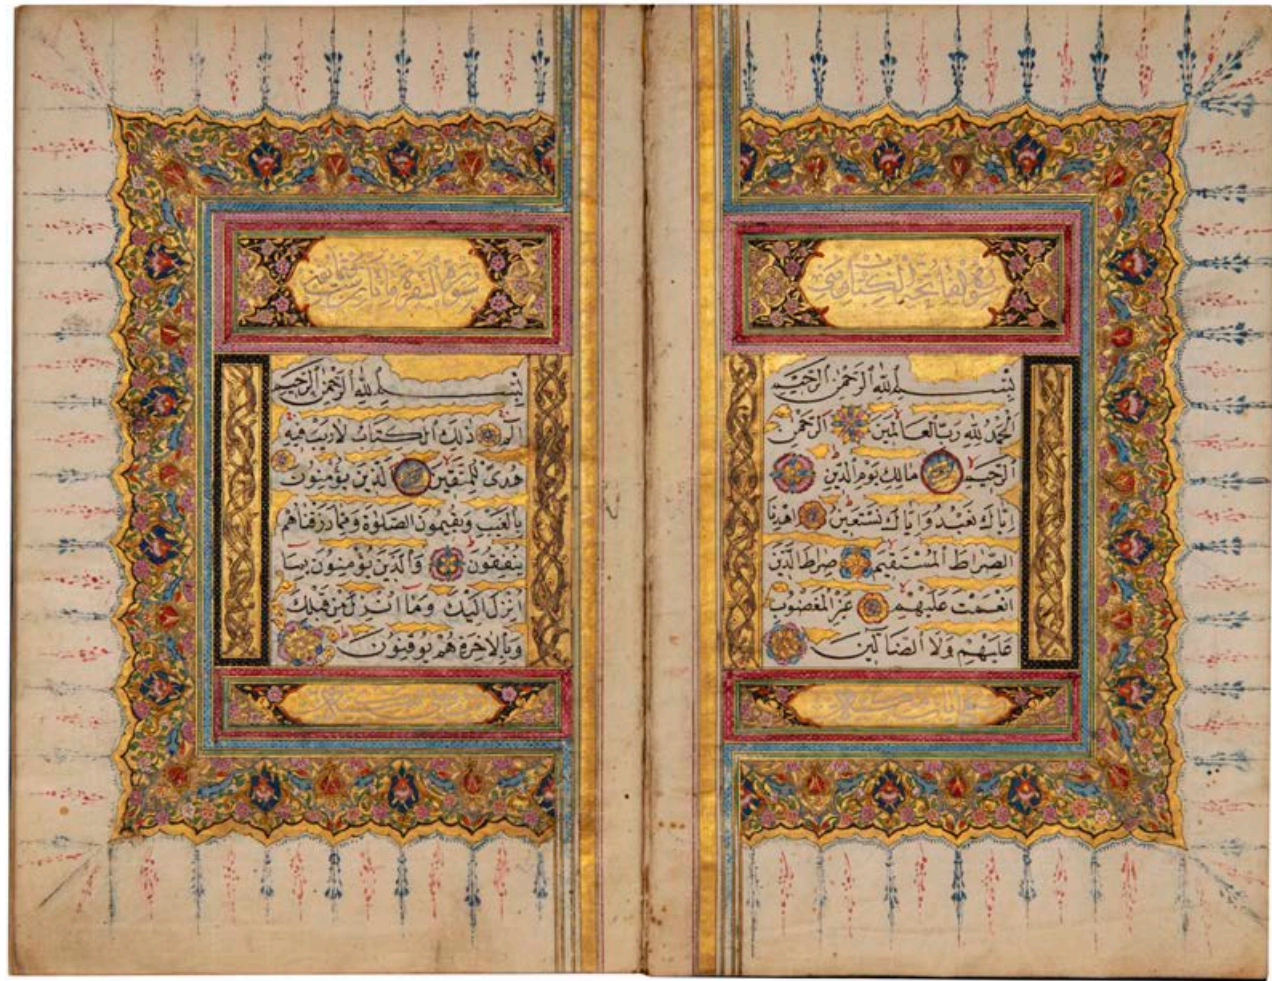 سورة الفاتحة الكتاب
بِسْمِ اللهِ الرَّحْمٰنِ الرَّحِيمِ
اَلْحَمْدُ لِلهِ رَبِّ الْعَالَمِينَ الرَّحْمٰنِ
الرَّحِيمِ مَالِكِ يَوْمِ الدِّينِ
اِيَّاكَ نَعْبُدُ وَاِيَّاكَ نَسْتَعِينُ اِهْدِنَا
الصِّرَاطَ الْمُسْتَقِيمَ صِرَاطَ الَّذِينَ
اَنْعَمْتَ عَلَيْهِمْ غَيْرِ الْمَغْضُوبِ
عَلَيْهِمْ وَلَا الضَّالِّينَ
سورة البقرة
بِسْمِ اللهِ الرَّحْمٰنِ الرَّحِيمِ
الٓمٓ ذٰلِكَ الْكِتَابُ لَا رَيْبَ فِيهِ
هُدًى لِلْمُتَّقِينَ الَّذِينَ يُؤْمِنُونَ
بِالْغَيْبِ وَيُقِيمُونَ الصَّلٰوةَ وَمِمَّا رَزَقْنَاهُمْ
يُنْفِقُونَ وَالَّذِينَ يُؤْمِنُونَ بِمَا
اُنْزِلَ اِلَيْكَ وَمَا اُنْزِلَ مِنْ قَبْلِكَ
وَبِالْاٰخِرَةِ هُمْ يُوقِنُونَ